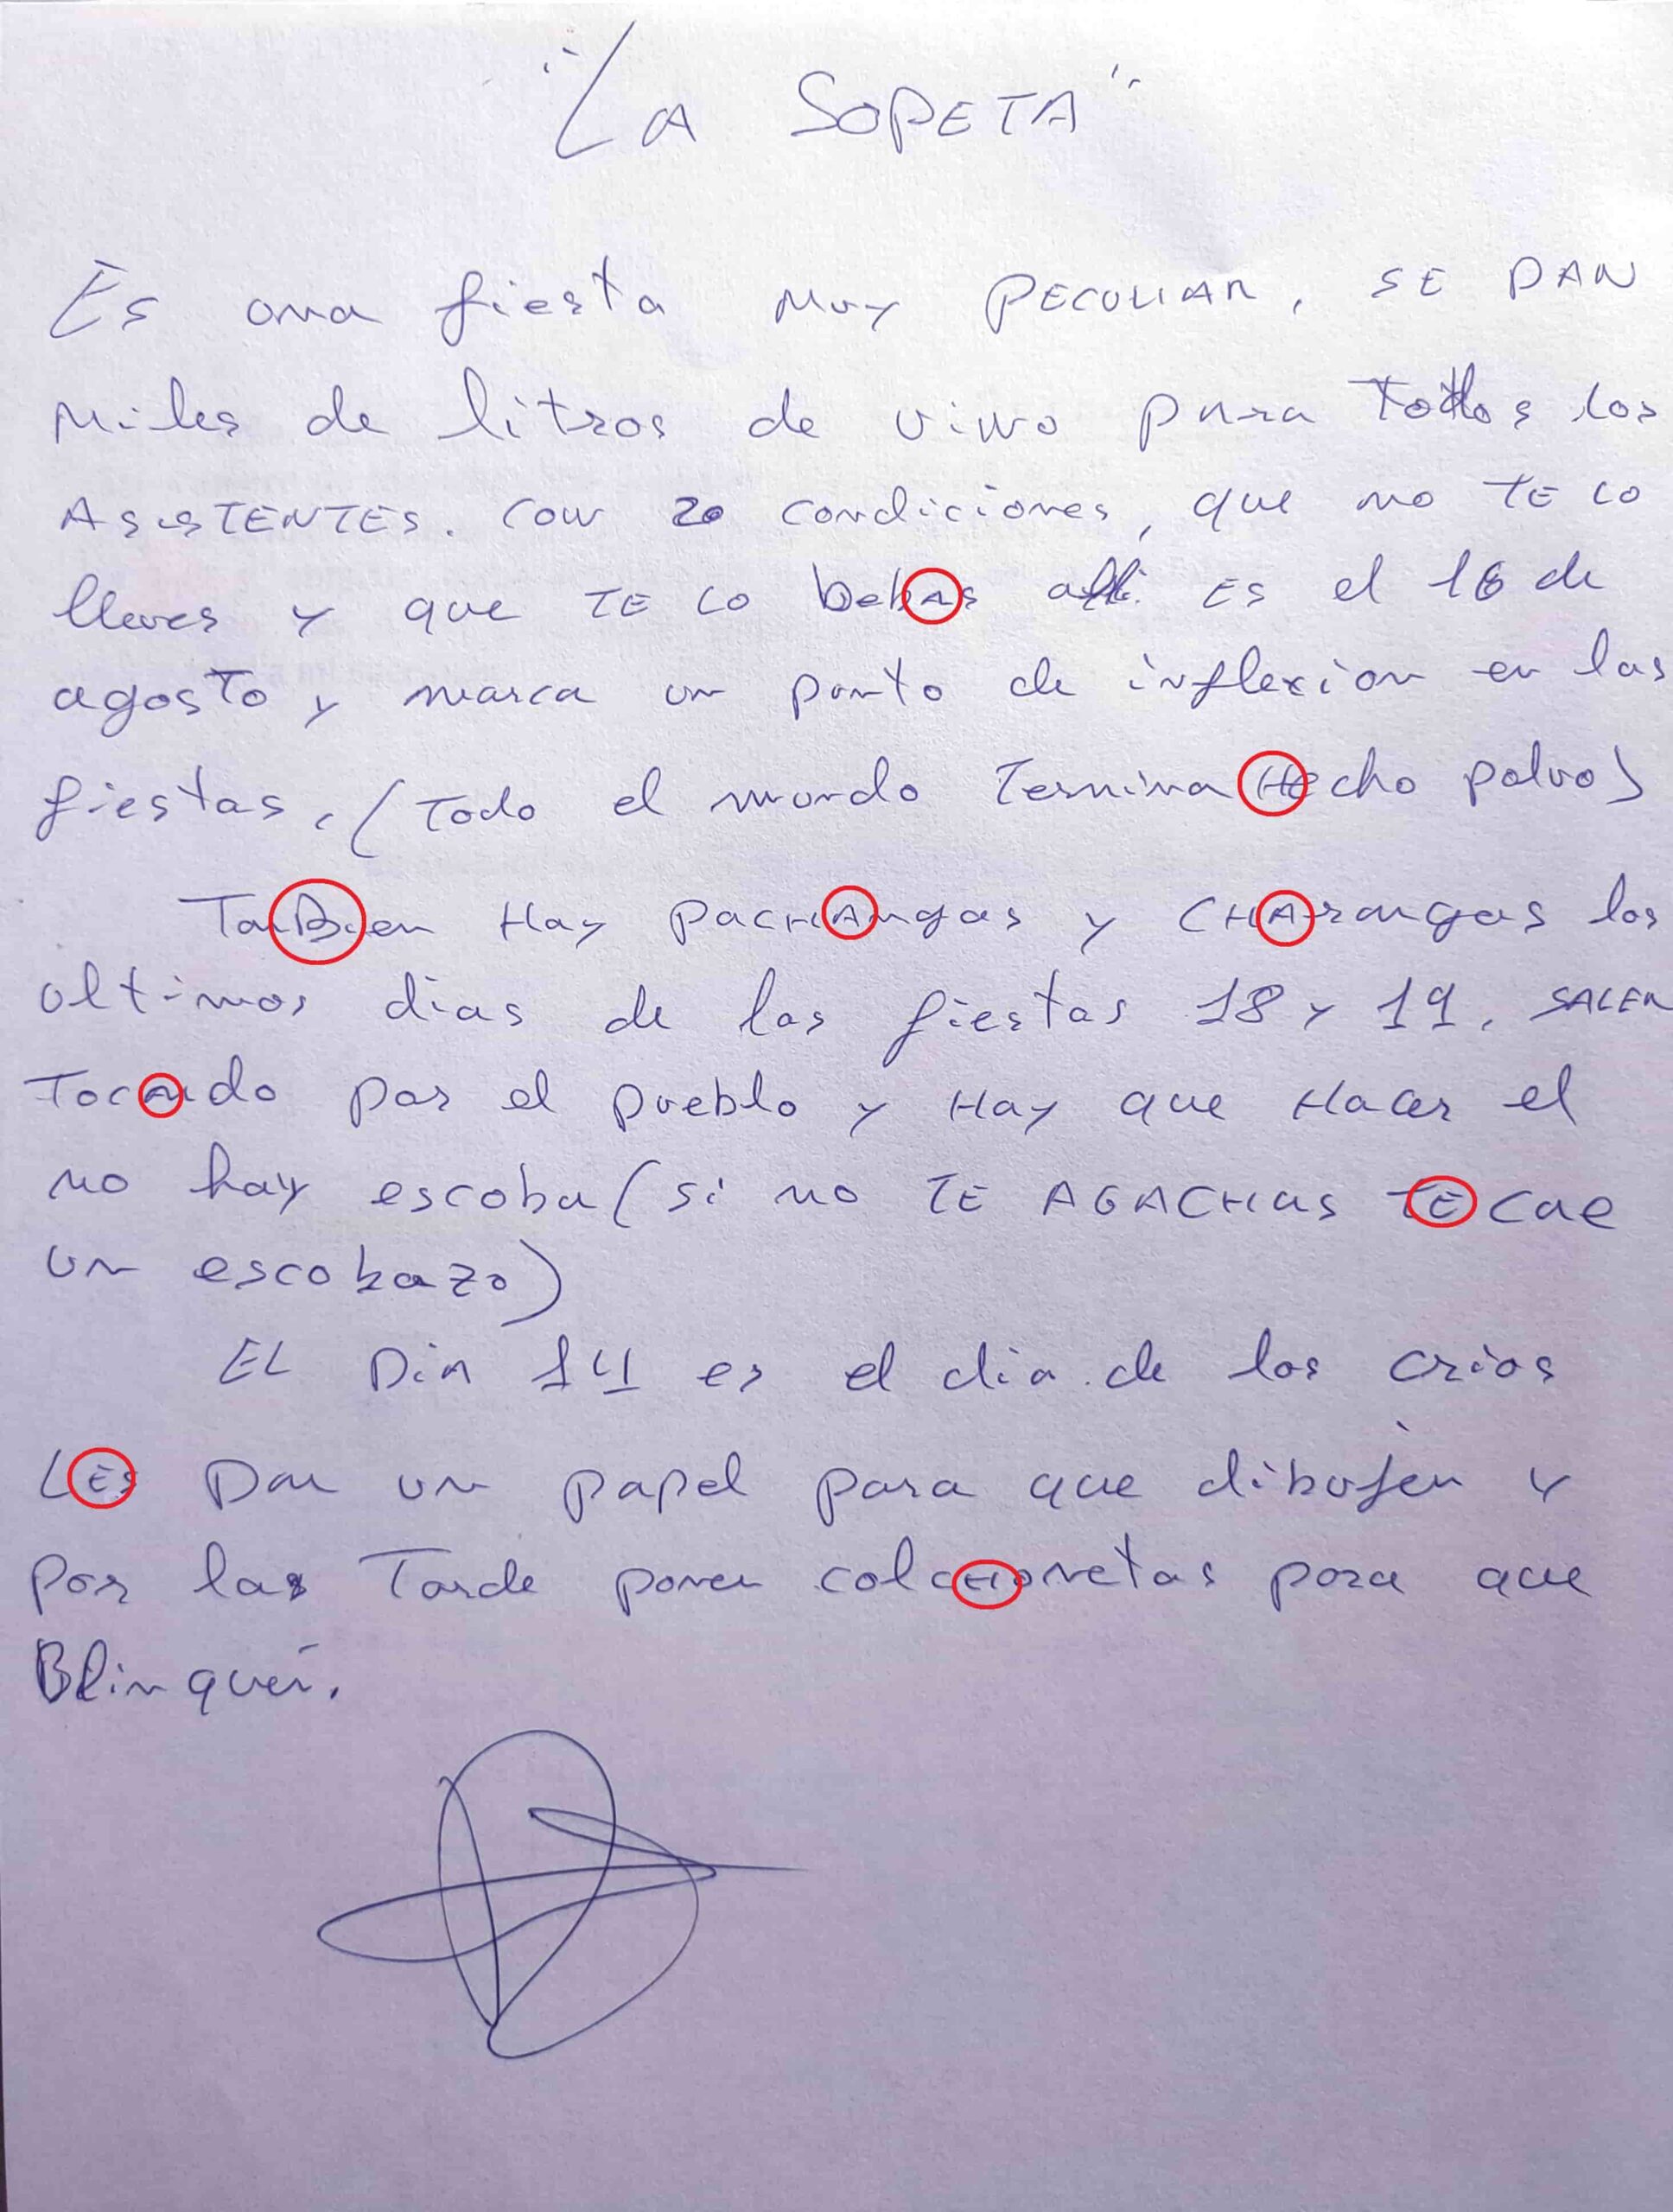 "La SOPETA"
Es una fiesta Muy PECULIAR, SE DAN
Miles de litros de vino para Todos los
ASISTENTES. Con 20 condiciones, que no TE LO
lleves y que TE LO bebAs alli. ES el 16 de
agosto y marca un punto de inflexion en las
fiestas, (Todo el mundo Termina Hecho polvo)
TaBien Hay PacHAngas y CHArangas los
ultimos dias de las fiestas 18 y 19, SALEN
Tocando por el pueblo y Hay que Hacer el
no hay escoba (si no TE AGACHas TE cae
un escobazo)
EL Dia 14 es el dia de los crios
LEs Dan un papel para que dibujen y
por las Tarde ponen colcHonetas para que
Blinquen.